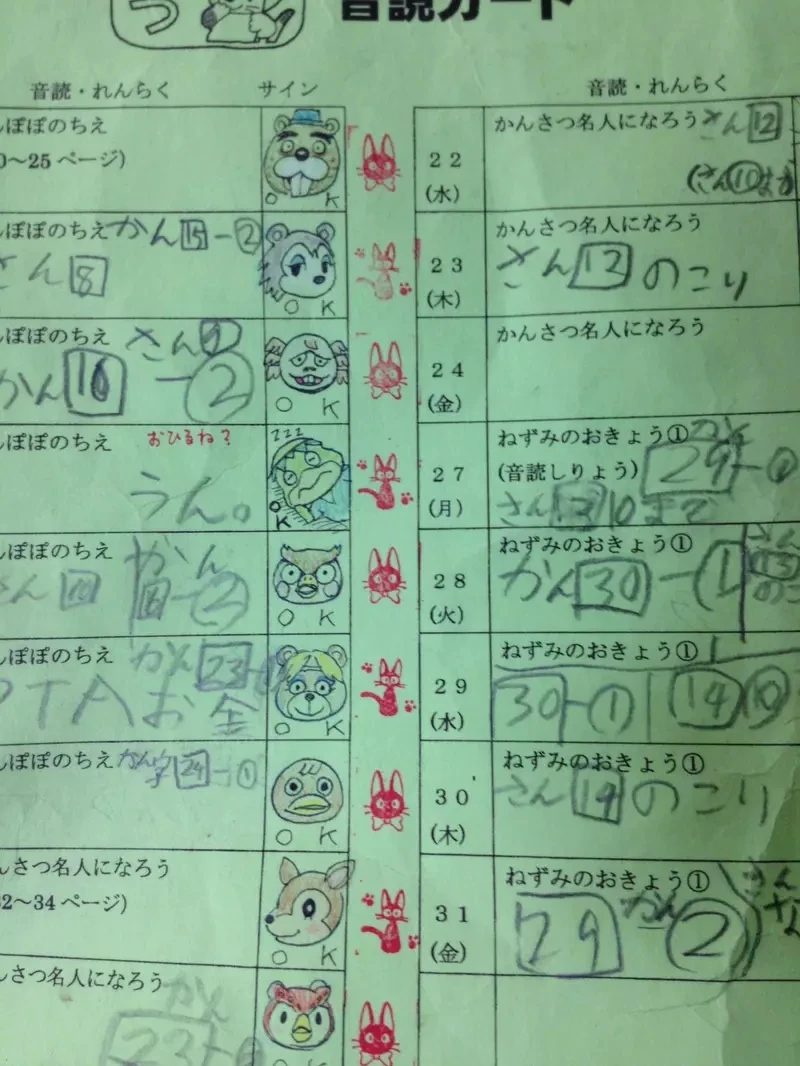 つ
音読カード
音読・れんらく サイン
んぽぽのちえ
0～25ページ)
O K
んぽぽのちえ かん15-②
さん8
O K
んぽぽのちえ さん9
かん16-②
O K
んぽぽのちえ おひるね?
うん。
zzz
OK
んぽぽのちえ かん
さん
②
O K
んぽぽのちえ かん23
PTAお金
O K
んぽぽのちえ かん字24-①
O K
んさつ名人になろう
32～34ページ)
O K
んさつ名人になろう かん
23
音読・れんらく
22
(水)
かんさつ名人になろう さん12
(さん⑩まで
23
(木)
かんさつ名人になろう
さん12のこり
24
(金)
かんさつ名人になろう
27
(月)
ねずみのおきょう① かん
(音読しりょう) 29-
さん13 10まで
28
(火)
ねずみのおきょう① さん
かん30-① 13
のこ
29
(水)
ねずみのおきょう①
30-① 14 ⑩
30
(木)
ねずみのおきょう①
さん14のこり
31
(金)
ねずみのおきょう① さん
29 かん ② な